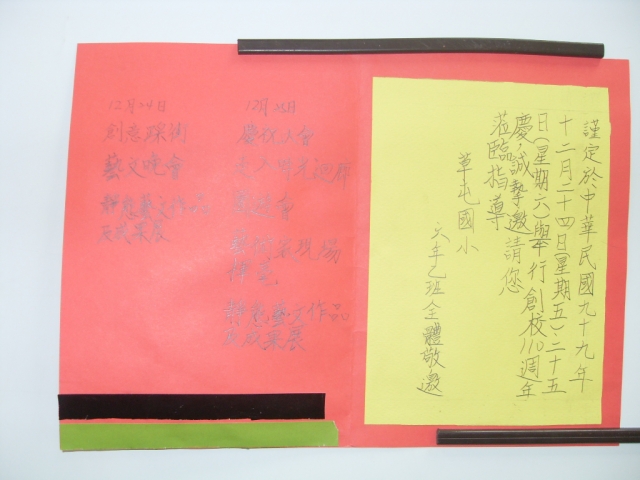 12月24日
創意踩街
藝文晚會
靜態藝文作品
及成果展
12月25日
慶祝大會
走入時光迴廊
園遊會
藝術家現場
揮毫
靜態藝文作品
及成果展
謹定於中華民國九十九年
十二月二十四日(星期五)、二十五
日(星期六)舉行創校110週年
慶,誠摯邀請您
蒞臨指導
草屯國小
六年乙班全體敬邀